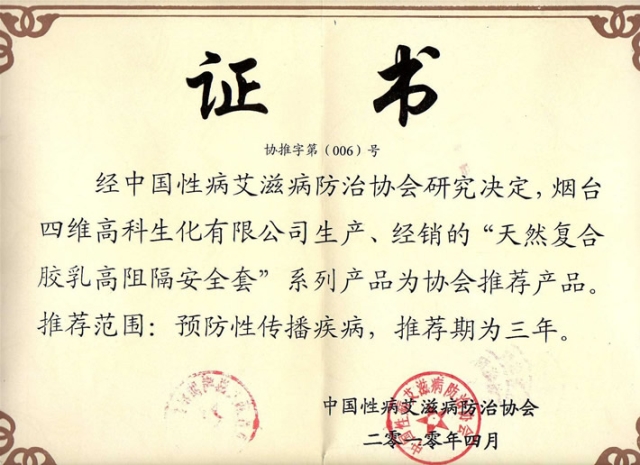 证 书
协推字第（006）号
经中国性病艾滋病防治协会研究决定，烟台
四维高科生化有限公司生产、经销的“天然复合
胶乳高阻隔安全套”系列产品为协会推荐产品。
推荐范围：预防性传播疾病，推荐期为三年。
中国性病艾滋病防治协会
中国性病艾滋病防治协会
二零一零年四月